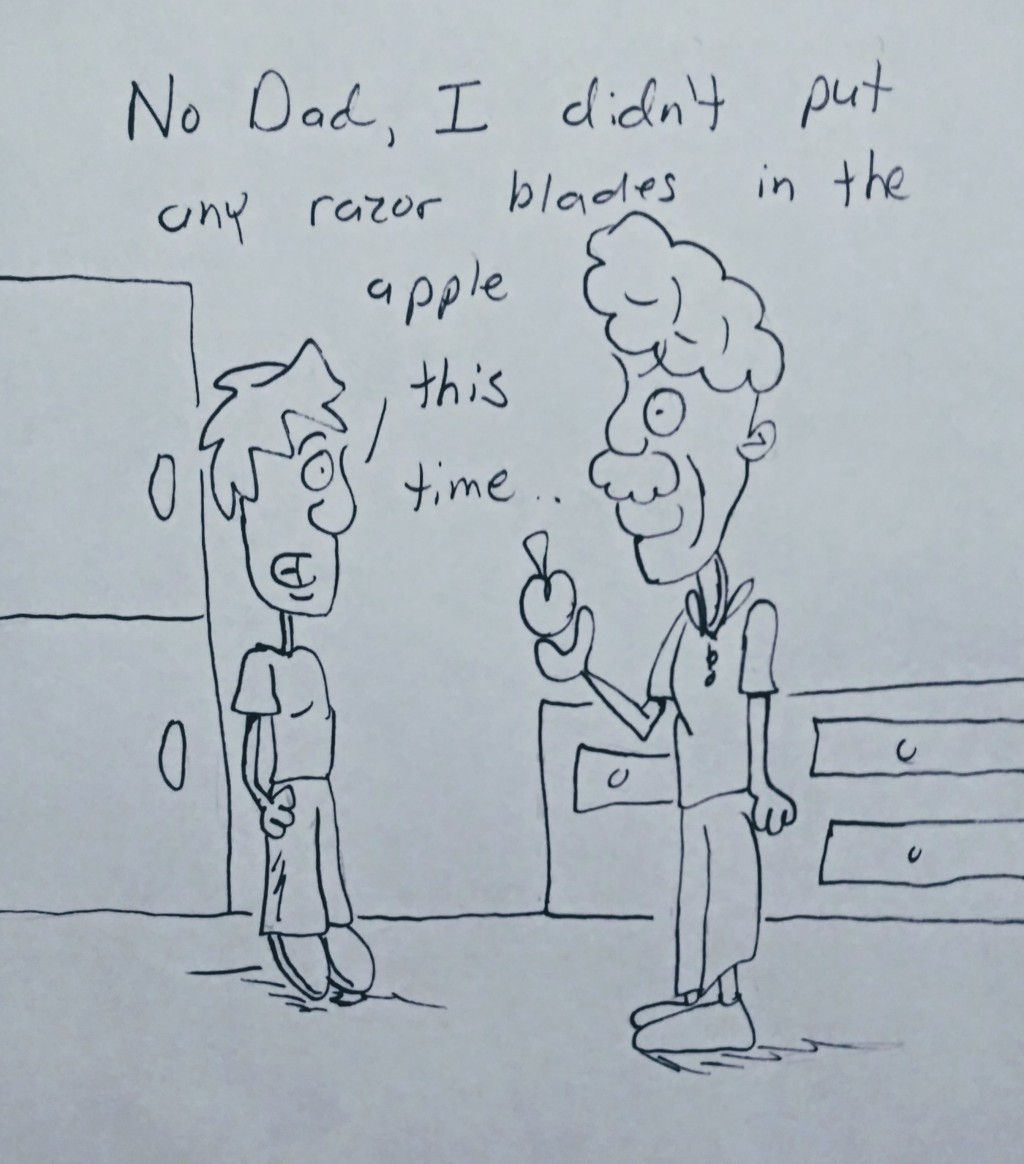 No Dad, I didn't put
any razor blades in the
apple
this
time..